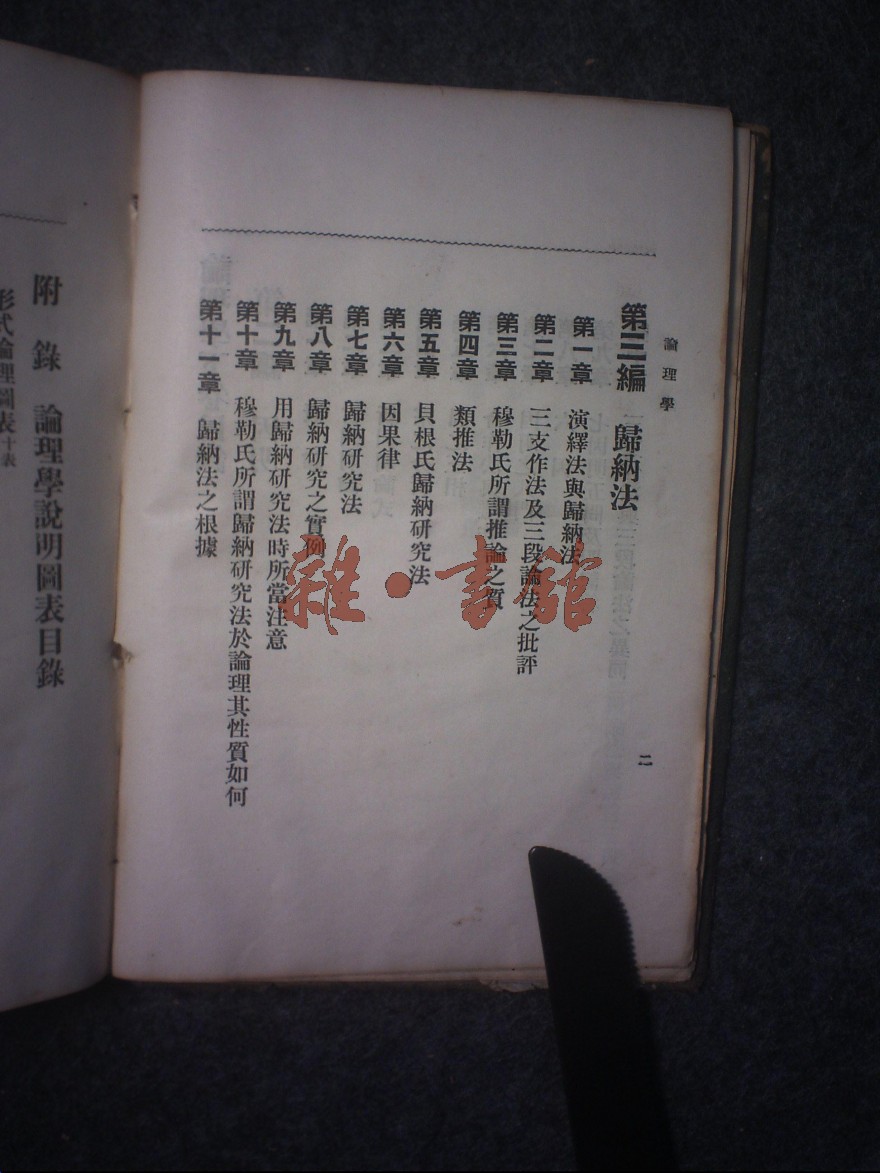 論理學
第三編　歸納法
第一章　演繹法與歸納法
第二章　三支作法及三段論法之批評
第三章　穆勒氏所謂推論之質
第四章　類推法
第五章　貝根氏歸納研究法
第六章　因果律
第七章　歸納研究法
第八章　歸納研究之實例
第九章　用歸納研究法時所當注意
第十章　穆勒氏所謂歸納研究法於論理其性質如何
第十一章　歸納法之根據
二
附錄　論理學說明圖表目錄
形式論理圖表十表
雜·書館